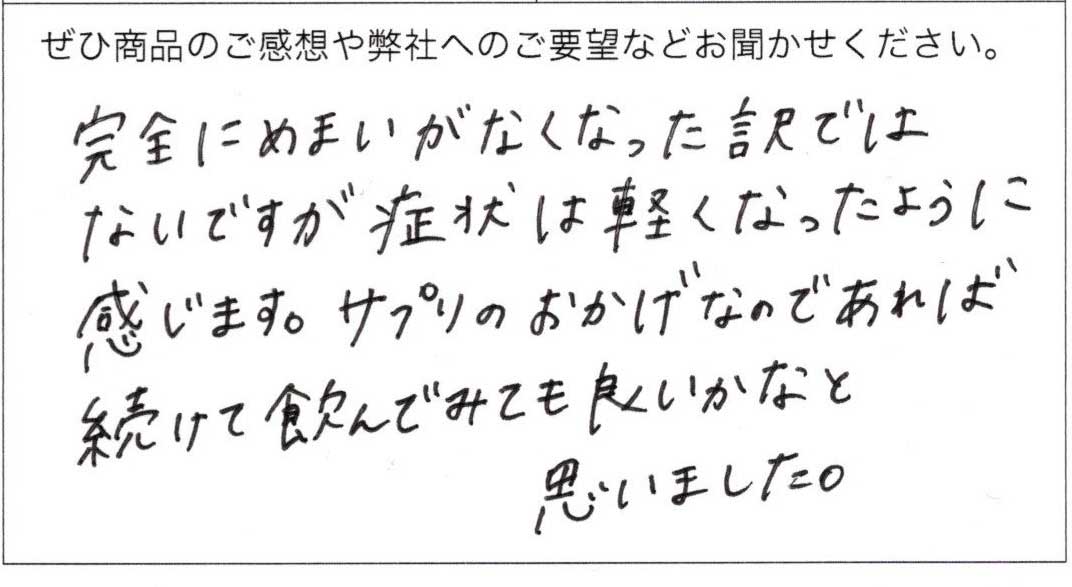 ぜひ商品のご感想や弊社へのご要望などお聞かせください。
完全にめまいがなくなった訳では
ないですが症状は軽くなったように
感じます。サプリのおかげなのであれば
続けて飲んでみても良いかなと
思いました。